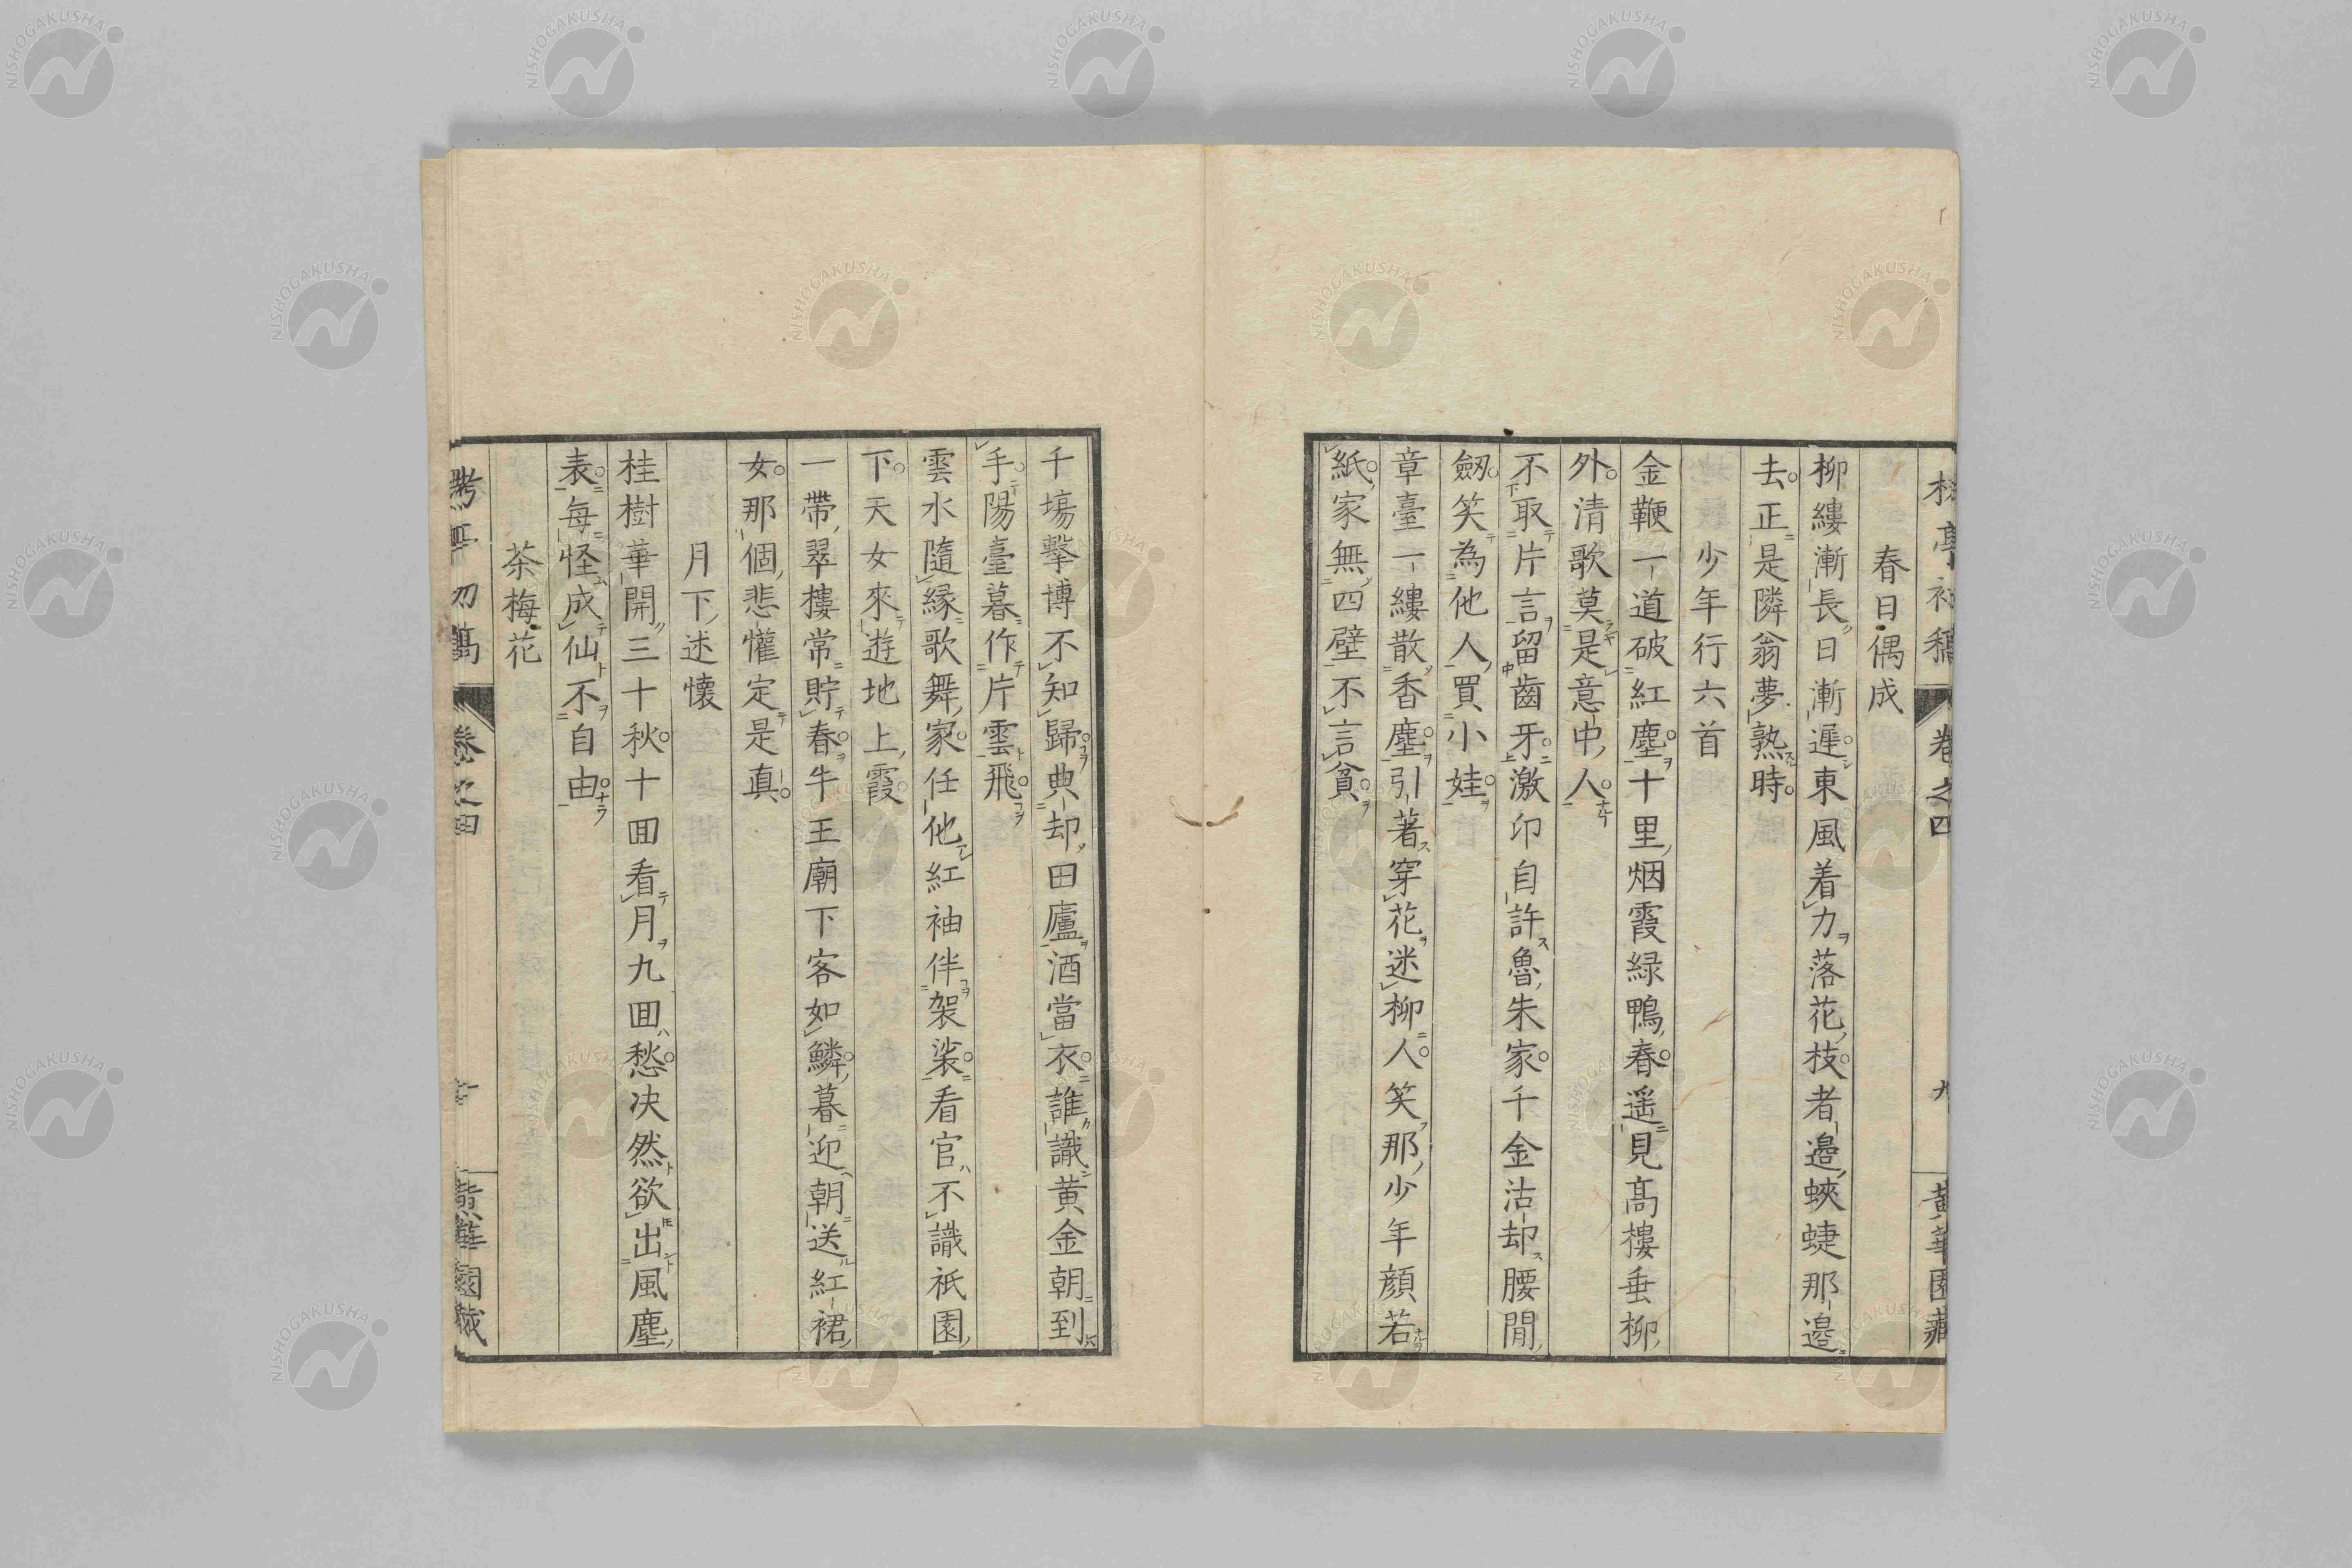 春日偶成
柳縷漸長日漸遲東風着力落花枝者邉蛺蝶那邉
去正是隣翁夢熟時
少年行六首
金鞭一道破紅塵十里烟霞緑鴨春遥見髙樓垂柳
外清歌莫是意中人
不取片言留齒牙激卬自許魯朱家千金沽却腰間
劔笑為他人買小娃
章臺一縷散香塵引著穿花迷柳人笑那少年顔若
紙家無四壁不言貧
千塲擊博不知歸典却田廬酒當衣誰識黄金朝到
手陽臺暮作片雲飛
雲水隨縁歌舞家任他紅袖伴袈裟看官不識祇園
下天女來遊地上霞
一帶翠樓常貯春牛王廟下客如鱗暮迎朝送紅裙
女那個悲懽定是真
月下述懷
桂樹華開三十秋十回看月九回愁决然欲出風塵
表每怪成仙不自由
茶梅花
卷之四
九
黄華園藏
卷之四
黄華園藏
NISHOGAKUSHA